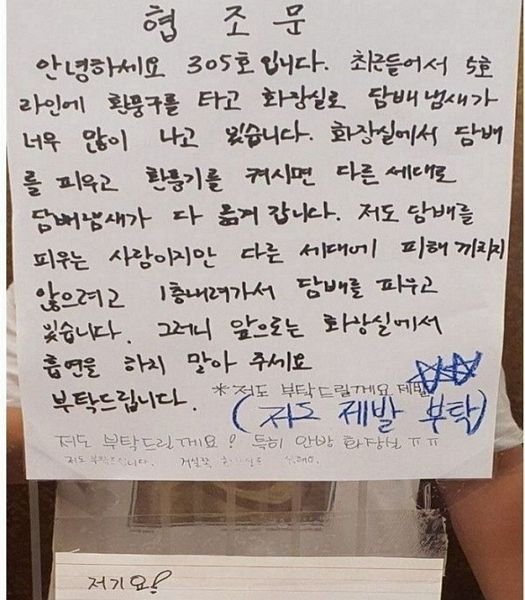 협 조 문
안녕하세요 305호입니다. 최근들어서 5호
라인에 환풍구를 타고 화장실로 담배냄새가
너무 많이 나고 있습니다. 화장실에서 담배
를 피우고 환풍기를 켜시면 다른 세대로
담배냄새가 다 옮겨 갑니다. 저도 담배를
피우는 사람이지만 다른 세대에 피해 끼치지
않으려고 1층내려가서 담배를 피우고
있습니다. 그러니 앞으로는 화장실에서
흡연을 하지 말아 주세요
부탁드립니다. *저도 부탁드릴께요 제발
(저도 제발 부탁)
저도 부탁드릴게요! 특히 안방 화장실 ㅠㅠ
저도 부탁드립니다.
저기요!